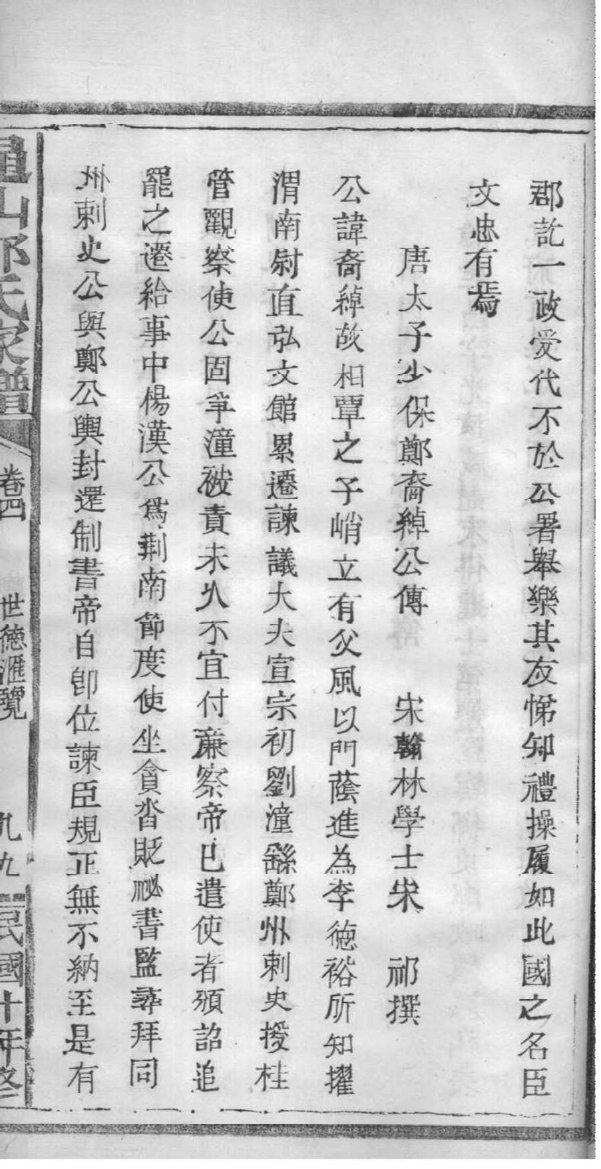 郡訖一政受代不於公署舉樂其友悌知禮操履如此國之名臣
文忠有焉
唐太子少保鄭裔綽公傳 宋翰林學士宋 祁撰
公諱裔綽故相覃之子峭立有父風以門蔭進為李德裕所知擢
渭南尉直弘文館累遷諫議大夫宣宗初劉潼繇鄭州刺史授桂
管觀察使公固爭潼被責未久不宜付廉察帝已遣使者頒詔追
罷之遷給事中楊漢公為荆南節度使坐貪沓貶祕書監尋拜同
州刺史公與鄭公輿封還制書帝自卽位諫臣規正無不納至是有
山鄭氏家譜 卷四 世德滙覽 九九 民國十年修